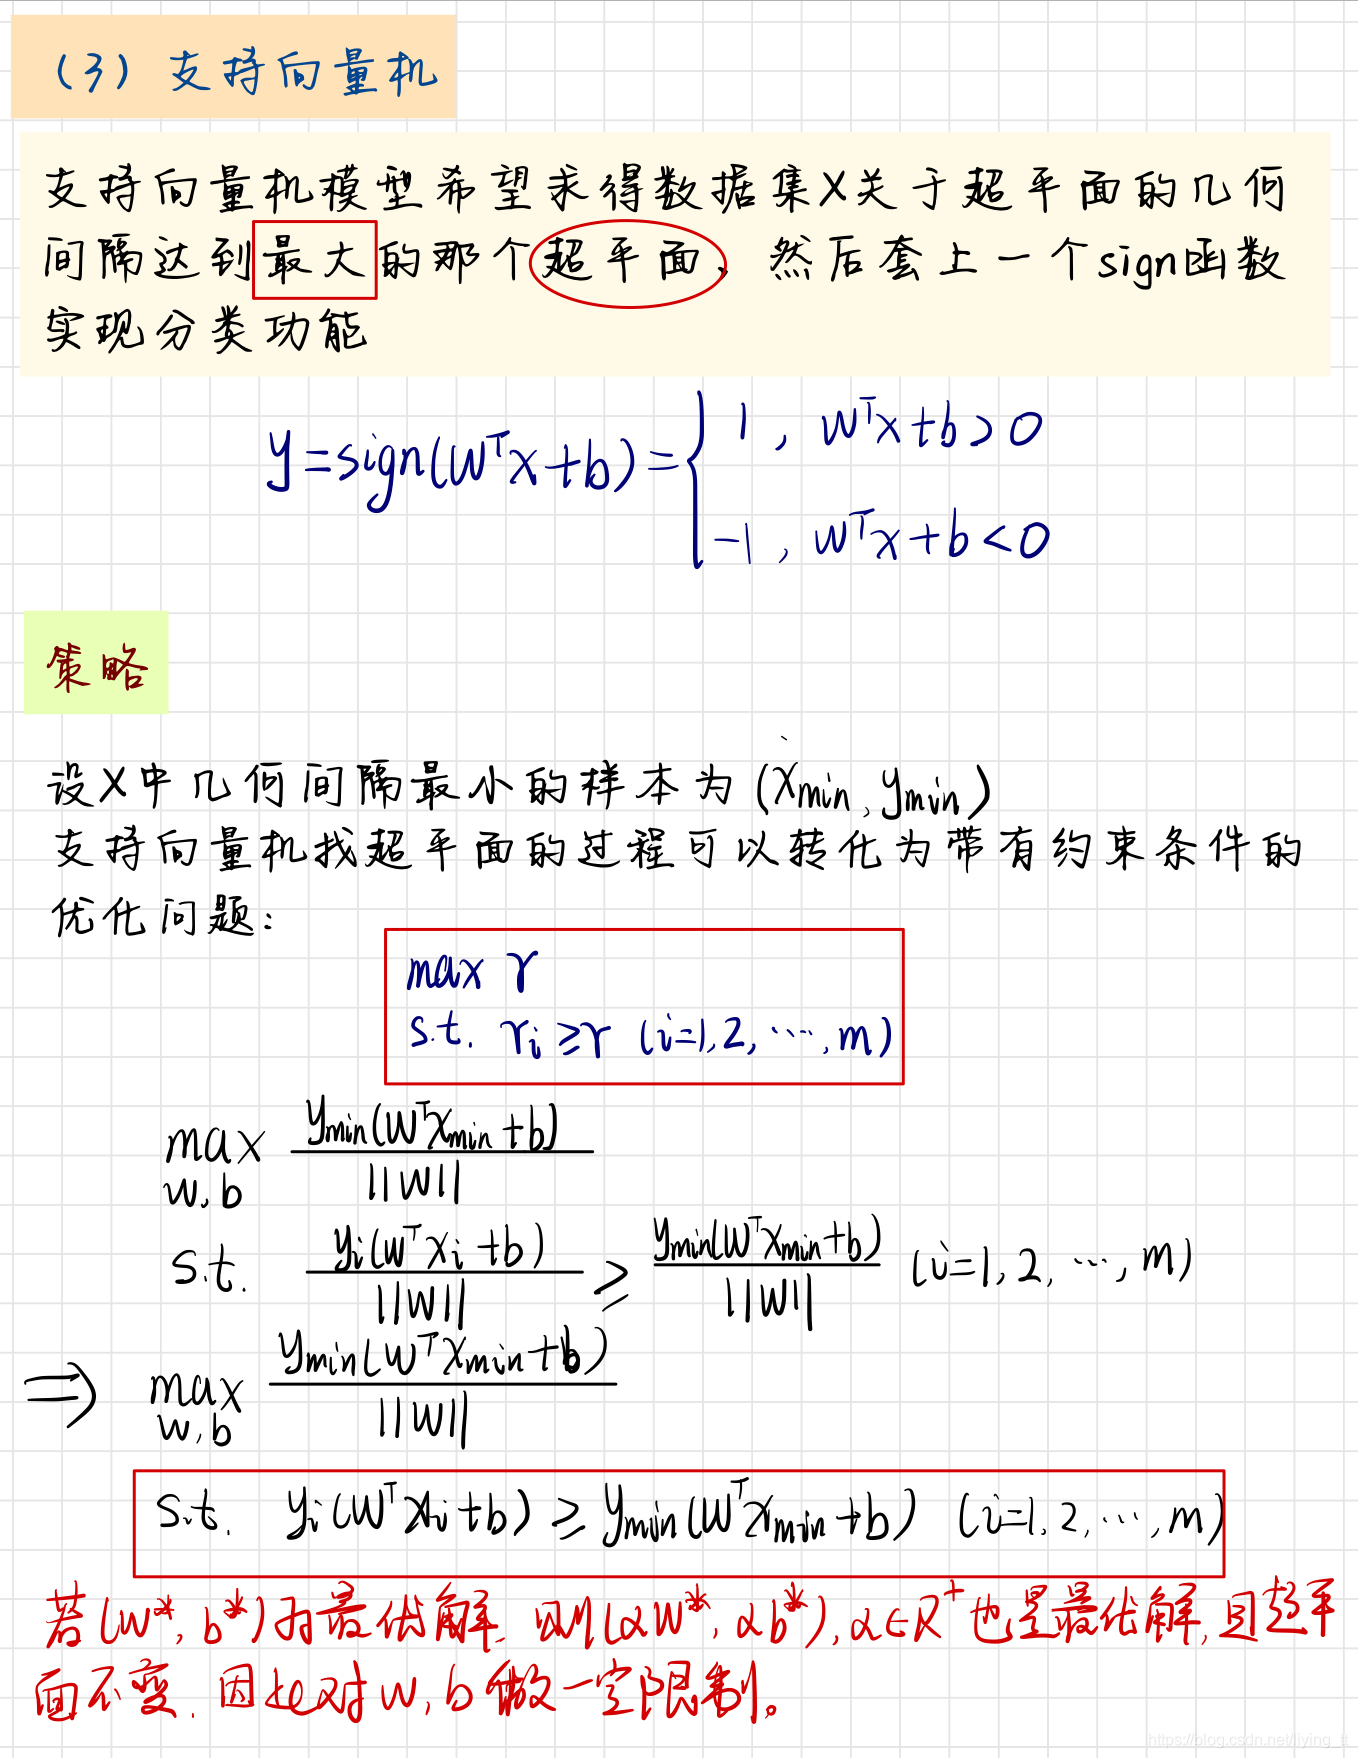 (3) 支持向量机
支持向量机模型希望求得数据集X关于超平面的几何
间隔达到最大的那个超平面、然后套上一个sign函数
实现分类功能
y=sign(wᵀx+b)={ 1, wᵀx+b>0
-1, wᵀx+b<0
策略
设X中几何间隔最小的样本为(x_min, y_min)
支持向量机找超平面的过程可以转化为带有约束条件的
优化问题:
max γ
s.t. γ_i ≥ γ (i=1,2,…,m)
max_{w,b} y_min(wᵀx_min+b) / ||w||
s.t. y_i(wᵀx_i+b) / ||w|| ≥ y_min(wᵀx_min+b) / ||w|| (i=1,2,…,m)
⇒ max_{w,b} y_min(wᵀx_min+b) / ||w||
s.t. y_i(wᵀx_i+b) ≥ y_min(wᵀx_min+b) (i=1,2,…,m)
若(w*,b*)为最优解,则(αw*,αb*),α∈R⁺也是最优解,且超平
面不变,因此对w,b做一定限制。
https://blog.csdn.net/liying_tt